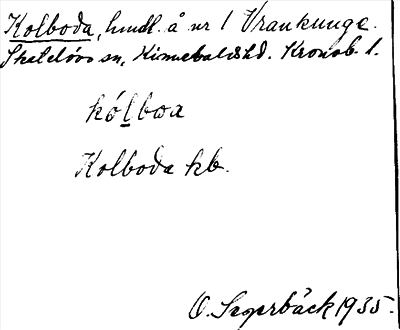 Kolboda, hmdl. å nr 1 Vrankunge.
Skatelövs sn, Kinnevalds hd. Kronob. l.
kólboa
Kolboda kb.
O. Sagerbäck 1935.